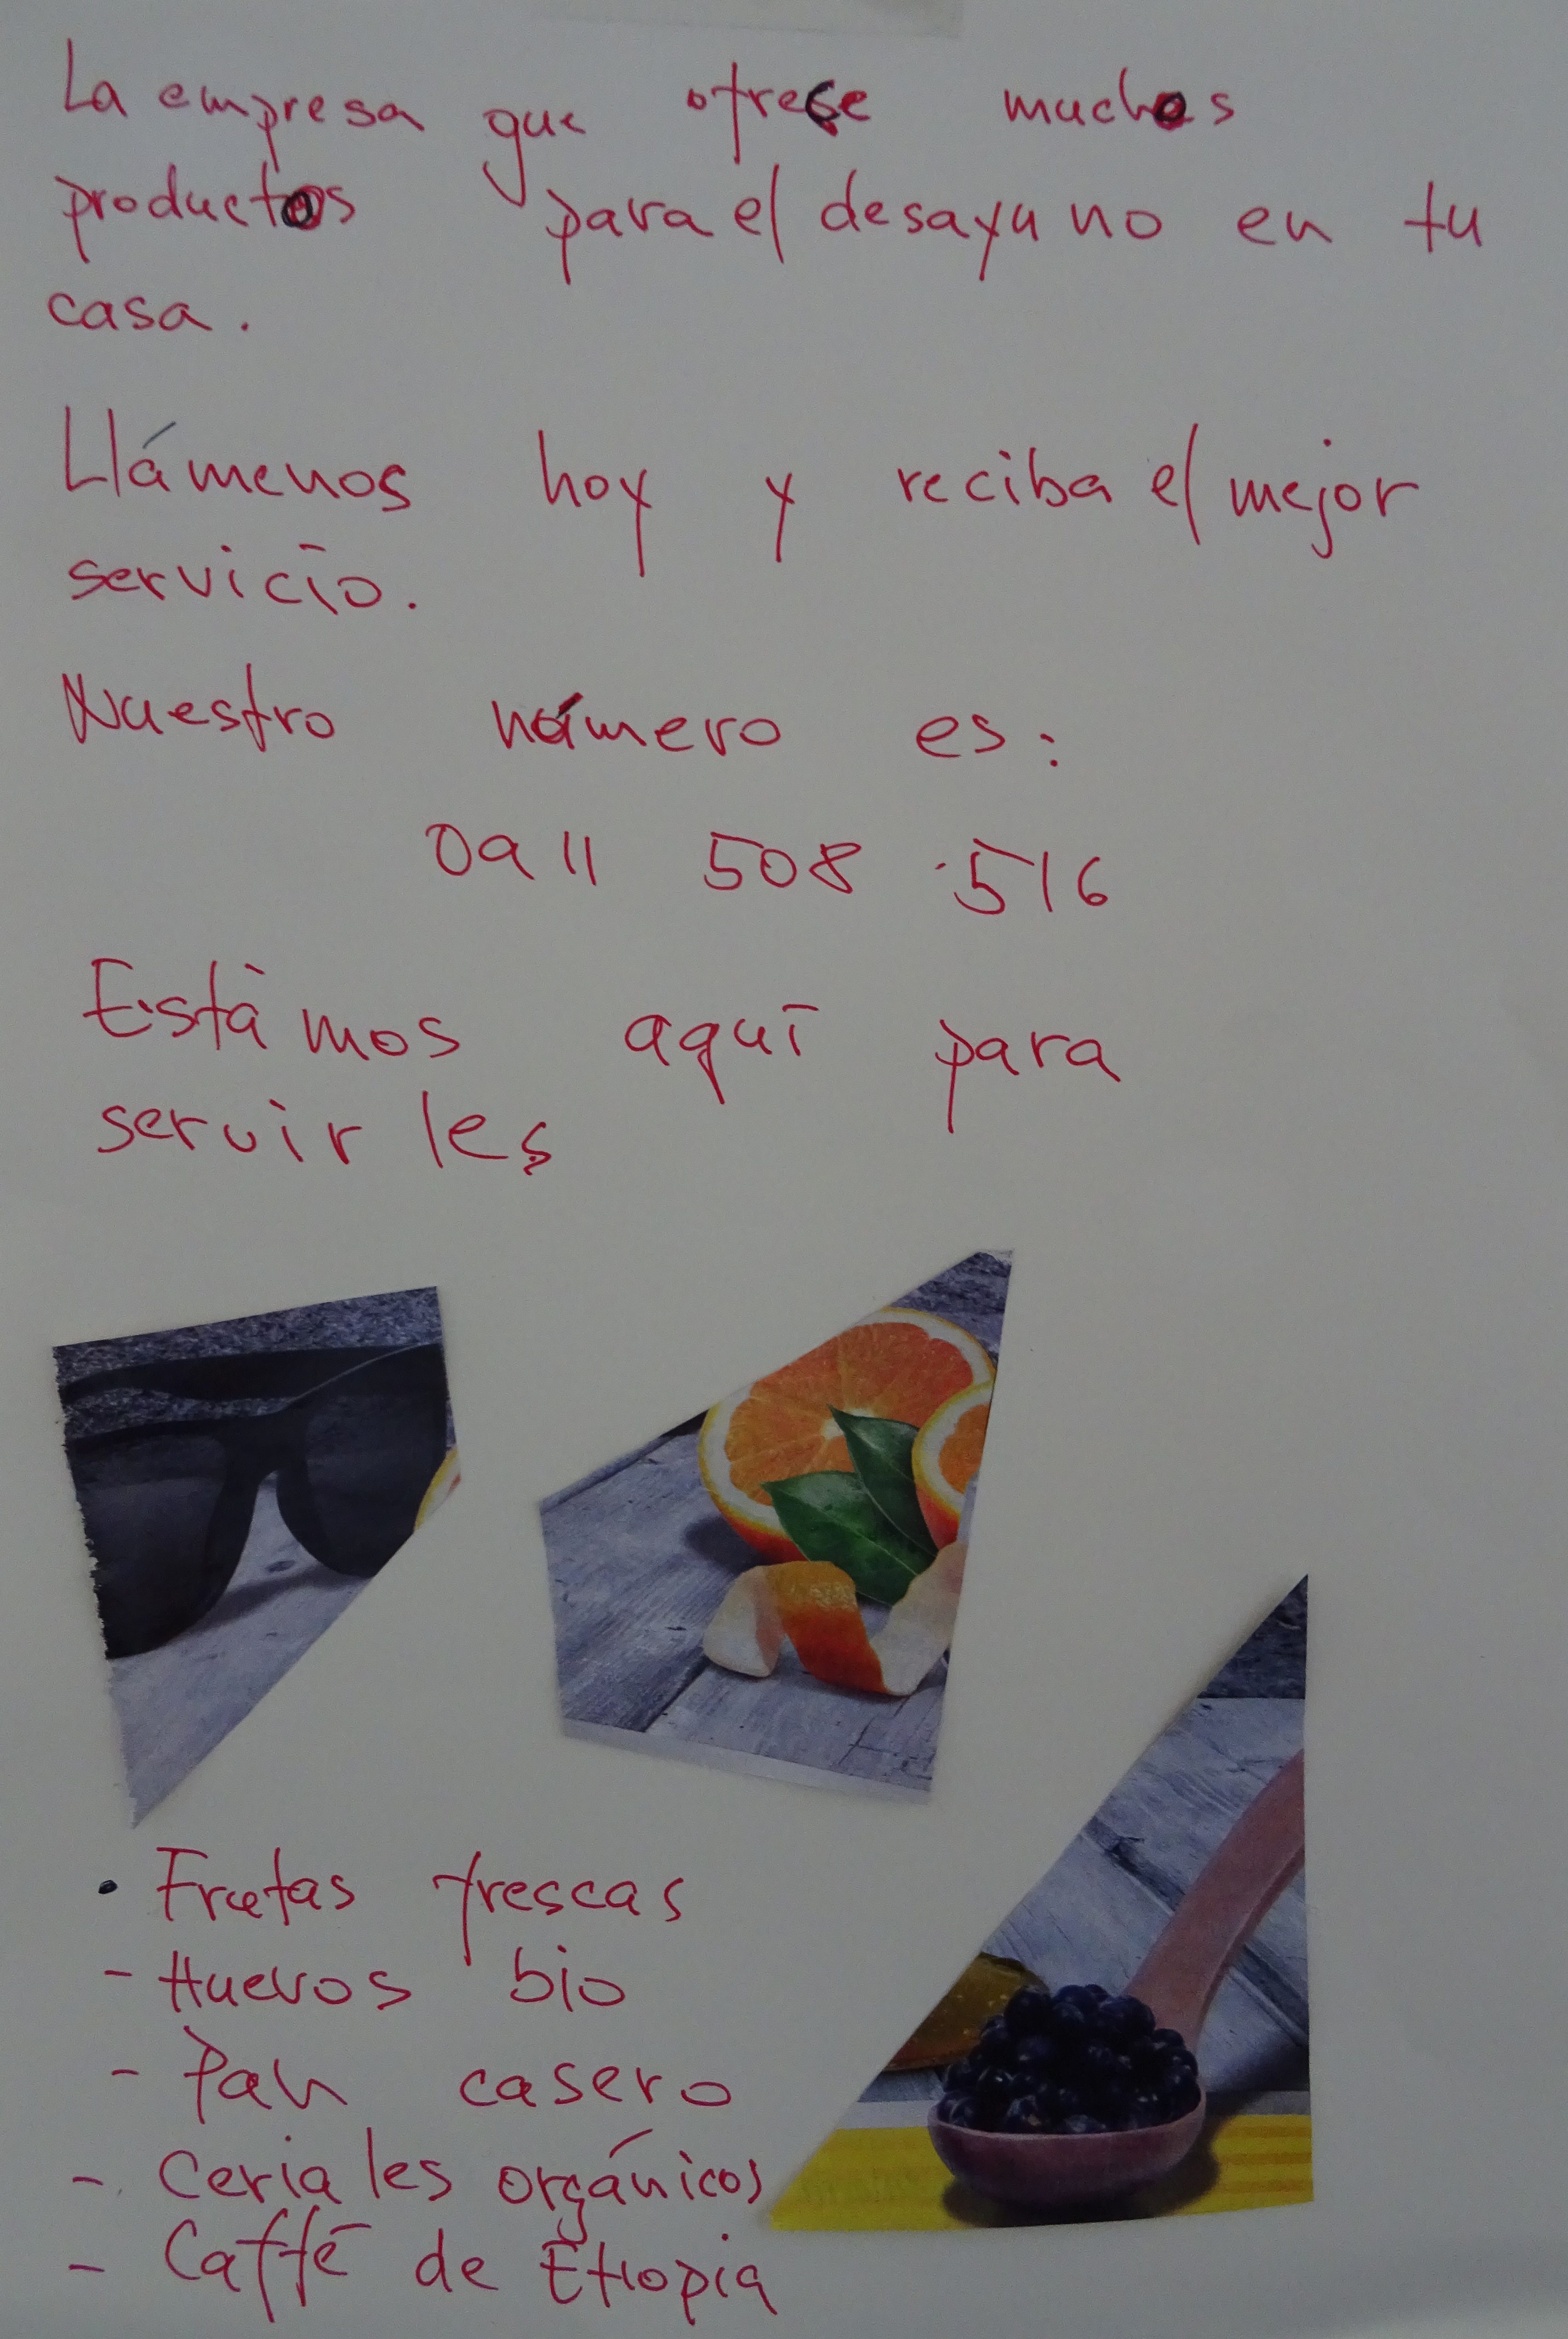 La empresa que ofrece muchos
productos para el desayuno en tu
casa.
Llámenos hoy y reciba el mejor
servicio.
Nuestro número es:
0911 508 516
Estámos aquí para
servirles
• Frutas frescas
- Huevos bio
- Pan casero
- Ceriales orgánicos
- Caffé de Etiopia